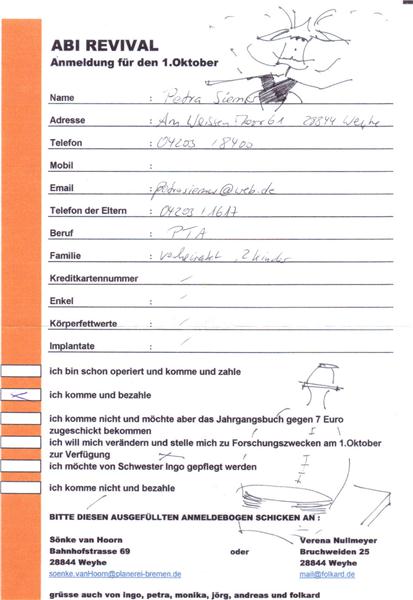 ABI REVIVAL
Anmeldung für den 1.Oktober
Name : Petra Siemer
Adresse : Am Weissen Moor 61 28844 Weyhe
Telefon : 04203 / 8400
Mobil :
Email : petrasiemer@web.de
Telefon der Eltern : 04203 / 1617
Beruf : PTA
Familie : verheiratet, 2 Kinder
Kreditkartennummer : /
Enkel : /
Körperfettwerte : /
Implantate : /
ich bin schon operiert und komme und zahle
x ich komme und bezahle
ich komme nicht und möchte aber das Jahrgangsbuch gegen 7 Euro
zugeschickt bekommen
ich will mich verändern und stelle mich zu Forschungszwecken am 1.Oktober
zur Verfügung
ich möchte von Schwester Ingo gepflegt werden
ich komme nicht und bezahle
BITTE DIESEN AUSGEFÜLLTEN ANMELDEBOGEN SCHICKEN AN :
Sönke van Hoorn oder Verena Nullmeyer
Bahnhofstrasse 69 Bruchweiden 25
28844 Weyhe 28844 Weyhe
soenke.vanHoorn@planerei-bremen.de mail@folkard.de
grüsse auch von ingo, petra, monika, jörg, andreas und folkard